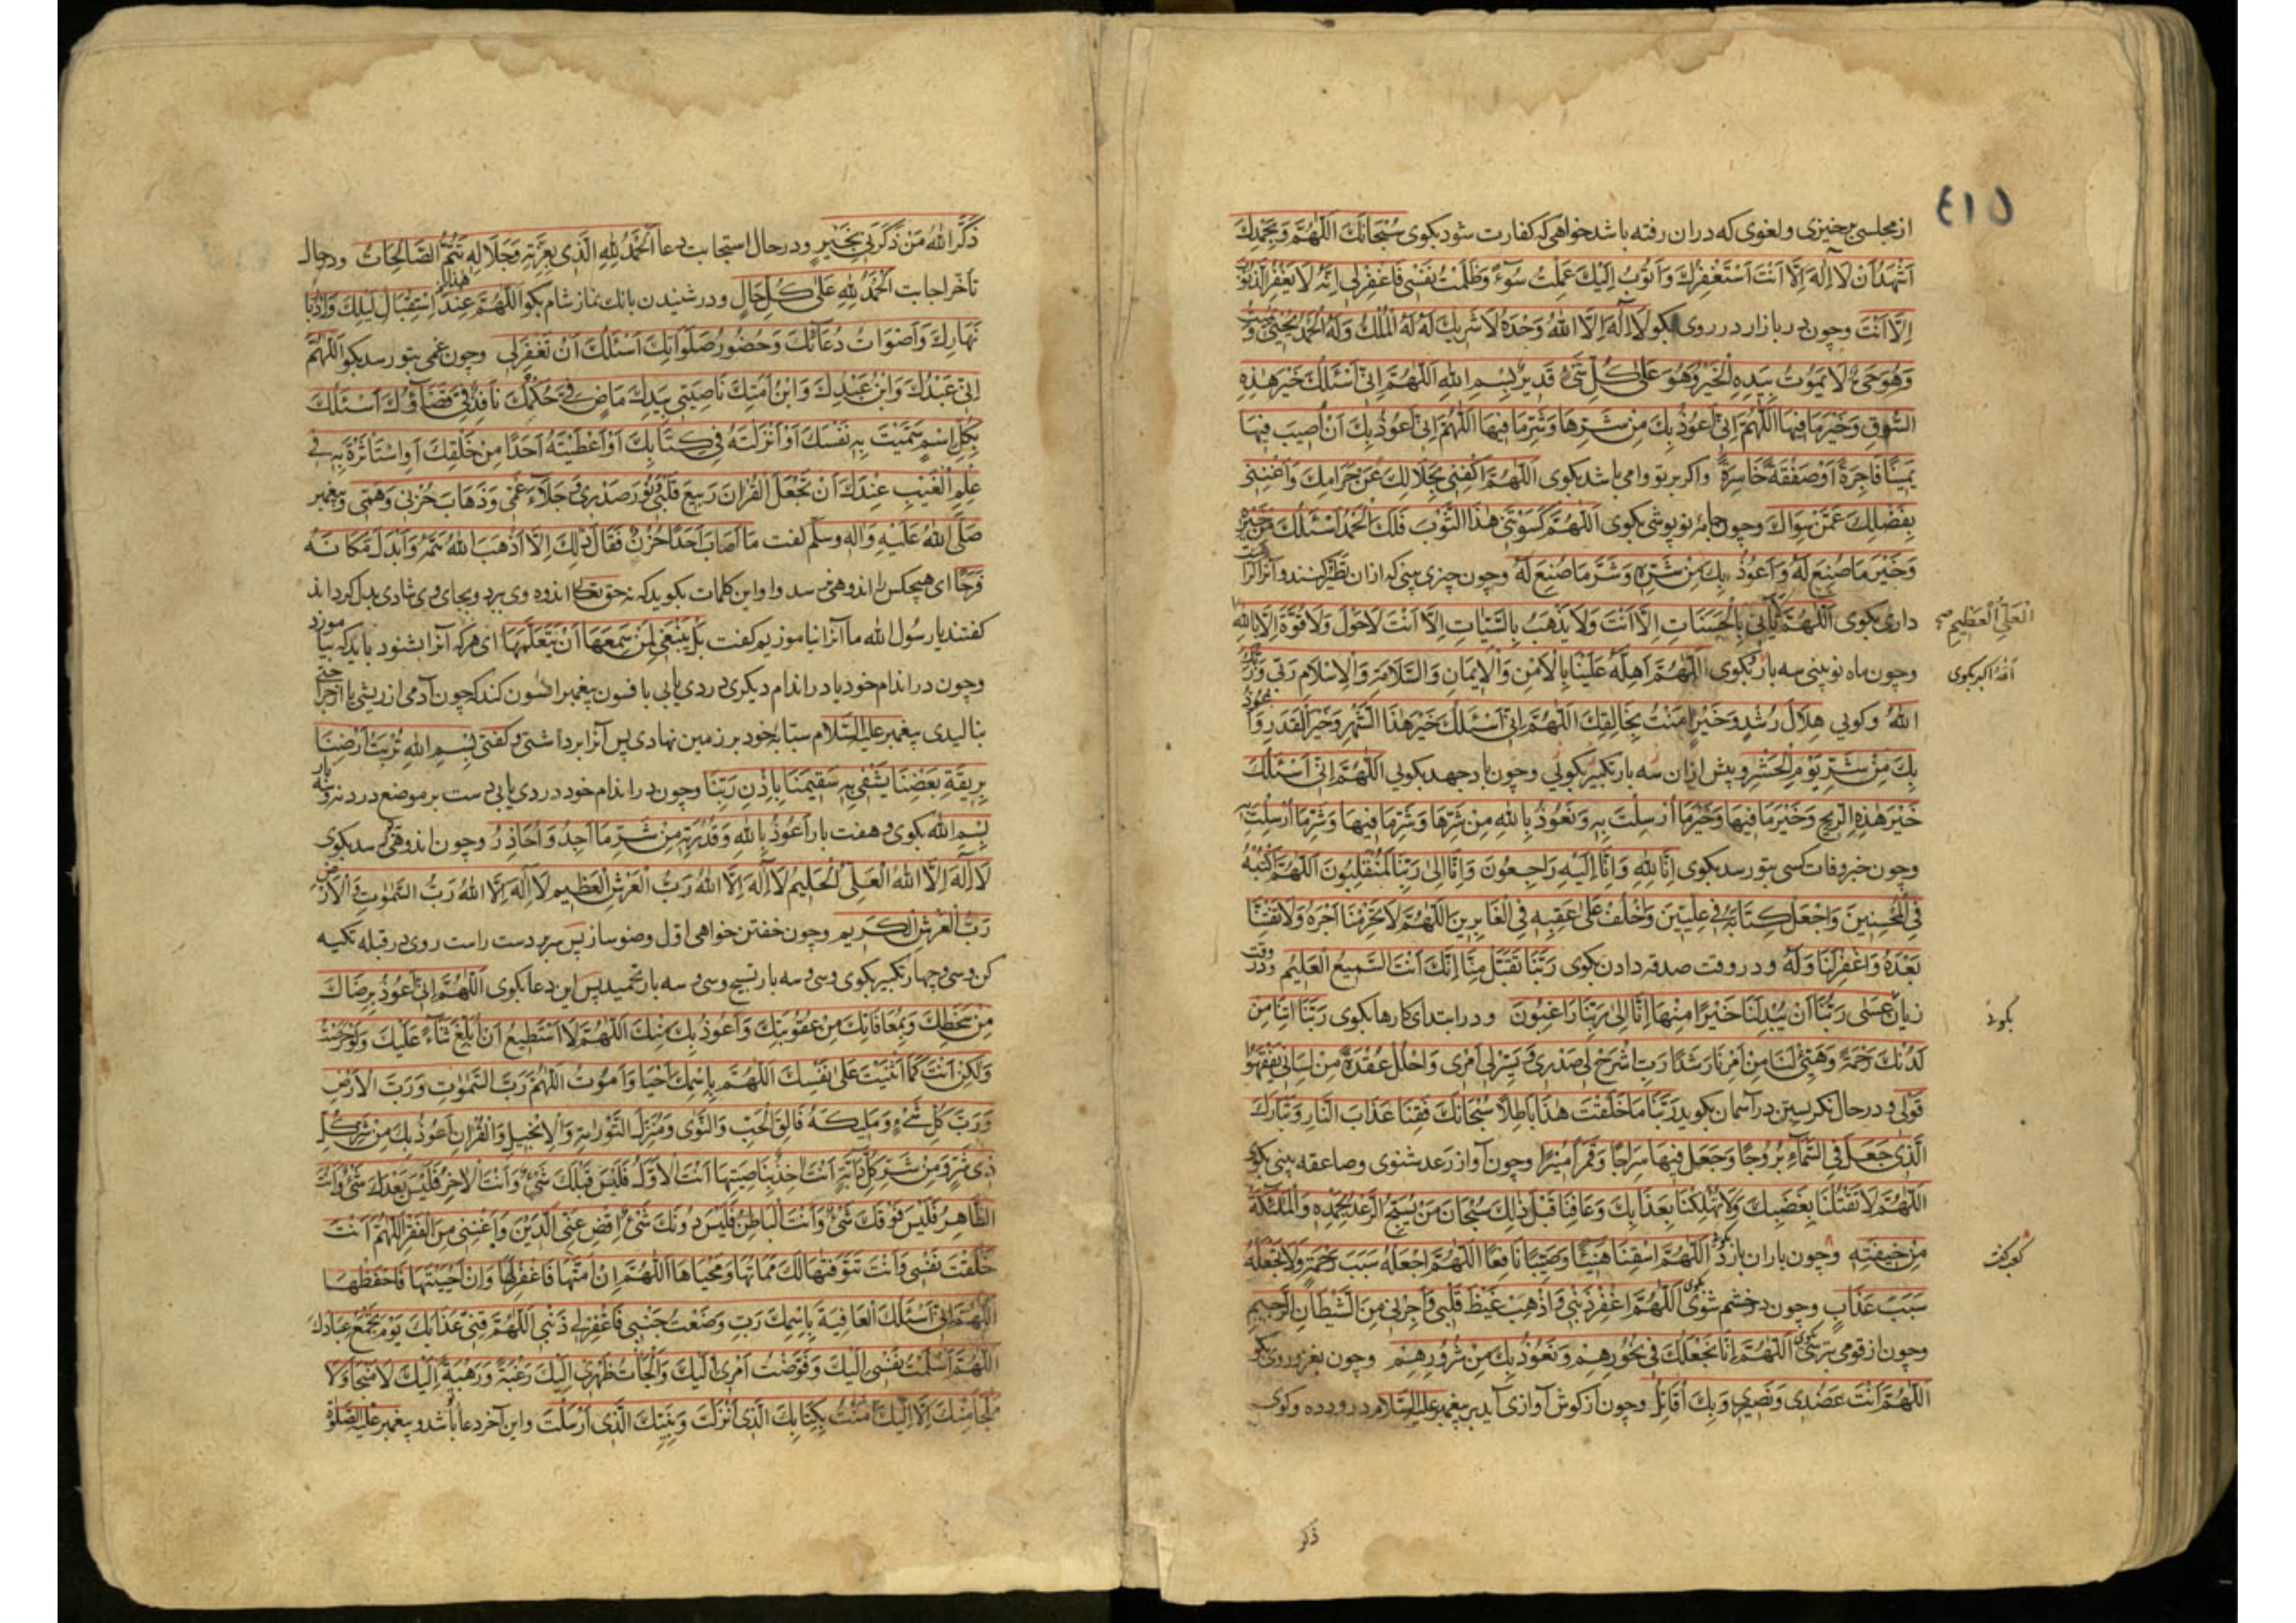 ٤١٥
از مجلسی برخیزی و لغوی که دران رفته باشد خواهی که کفارت شود بکوی سُبْحَانَكَ اللّٰهُمَّ وَبِحَمْدِكَ
اَشْهَدُ اَنْ لَا اِلٰهَ اِلَّا اَنْتَ اَسْتَغْفِرُكَ وَاَتُوْبُ اِلَيْكَ عَمِلْتُ سُوْءً وَظَلَمْتُ نَفْسِي فَاغْفِرْلِي اِنَّهُ لَا يَغْفِرُ الذُّنُوْبَ
اِلَّا اَنْتَ وچون در بازار در روی بکو لَا اِلٰهَ اِلَّا اللّٰهُ وَحْدَهُ لَا شَرِيْكَ لَهُ لَهُ الْمُلْكُ وَلَهُ الْحَمْدُ يُحْيِيْ وَيُمِيْتُ
وَهُوَ حَيٌّ لَا يَمُوْتُ بِيَدِهِ الْخَيْرُ وَهُوَ عَلٰى كُلِّ شَيْءٍ قَدِيْرٌ بِسْمِ اللّٰهِ اَللّٰهُمَّ اِنِّي اَسْئَلُكَ خَيْرَ هٰذِهِ
السُّوْقِ وَخَيْرَ مَا فِيْهَا اَللّٰهُمَّ اِنِّي اَعُوْذُ بِكَ مِنْ شَرِّهَا وَشَرِّ مَا فِيْهَا اَللّٰهُمَّ اِنِّي اَعُوْذُ بِكَ اَنْ اُصِيْبَ فِيْهَا
يَمِيْنًا فَاجِرَةً اَوْ صَفْقَةً خَاسِرَةً واکر بر تو وامی باشد بکوی اَللّٰهُمَّ اكْفِنِيْ بِحَلَالِكَ عَنْ حَرَامِكَ وَاَغْنِنِيْ
بِفَضْلِكَ عَمَّنْ سِوَاكَ وچون جامۀ نو پوشی بکوی اَللّٰهُمَّ كَسَوْتَنِيْ هٰذَا الثَّوْبَ فَلَكَ الْحَمْدُ اَسْئَلُكَ مِنْ خَيْرِهِ
وَخَيْرَ مَا صُنِعَ لَهُ وَاَعُوْذُ بِكَ مِنْ شَرِّهِ وَشَرِّ مَا صُنِعَ لَهُ وچون چیزی بینی که ازان تطیر کنند وآنرا کراهت
داری بکوی اَللّٰهُمَّ لَا يَأْتِيْ بِالْحَسَنَاتِ اِلَّا اَنْتَ وَلَا يَذْهَبُ بِالسَّيِّئَاتِ اِلَّا اَنْتَ لَا حَوْلَ وَلَا قُوَّةَ اِلَّا بِاللّٰهِ
الْعَلِيِّ الْعَظِيْمِ صح
وچون ماه نو بینی سه بار بکوی اَللّٰهُمَّ اَهِلَّهُ عَلَيْنَا بِالْاَمْنِ وَالْاِيْمَانِ وَالسَّلَامَةِ وَالْاِسْلَامِ رَبِّيْ وَرَبُّكَ
الله اکبر بکوی
اللّٰهُ وکویی هِلَالُ رُشْدٍ وَخَيْرٍ اٰمَنْتُ بِخَالِقِكَ اَللّٰهُمَّ اِنِّي اَسْئَلُكَ خَيْرَ هٰذَا الشَّهْرِ وَخَيْرَ الْقَدَرِ وَاَعُوْذُ
بِكَ مِنْ شَرِّ يَوْمِ الْحَشْرِ وپیش ازان سه بار تکبیر بکوئی وچون باد جهد بکوئی اَللّٰهُمَّ اِنِّي اَسْئَلُكَ
خَيْرَ هٰذِهِ الرِّيْحِ وَخَيْرَ مَا فِيْهَا وَخَيْرَ مَا اُرْسِلَتْ بِهِ وَنَعُوْذُ بِاللّٰهِ مِنْ شَرِّهَا وَشَرِّ مَا فِيْهَا وَشَرِّ مَا اُرْسِلَتْ بِهِ
وچون خبر وفات کسی بتو رسد بکوی اِنَّا لِلّٰهِ وَاِنَّا اِلَيْهِ رَاجِعُوْنَ وَاِنَّا اِلٰى رَبِّنَا لَمُنْقَلِبُوْنَ اَللّٰهُمَّ اكْتُبْهُ
فِي الْمُحْسِنِيْنَ وَاجْعَلْ كِتَابَهُ فِيْ عِلِّيِّيْنَ وَاخْلُفْ عَلٰى عَقِبِهِ فِي الْغَابِرِيْنَ اَللّٰهُمَّ لَا تَحْرِمْنَا اَجْرَهُ وَلَا تَفْتِنَّا
بَعْدَهُ وَاغْفِرْ لَنَا وَلَهُ ودر وقت صدقه دادن بکوی رَبَّنَا تَقَبَّلْ مِنَّا اِنَّكَ اَنْتَ السَّمِيْعُ الْعَلِيْمُ ودر وقت
زیان عَسٰى رَبُّنَا اَنْ يُبْدِلَنَا خَيْرًا مِنْهَا اِنَّا اِلٰى رَبِّنَا رَاغِبُوْنَ ودر ابتدای کارها بکوی رَبَّنَا اٰتِنَا مِنْ
بکوید
لَدُنْكَ رَحْمَةً وَهَيِّئْ لَنَا مِنْ اَمْرِنَا رَشَدًا رَبِّ اشْرَحْ لِيْ صَدْرِيْ وَيَسِّرْ لِيْ اَمْرِيْ وَاحْلُلْ عُقْدَةً مِنْ لِسَانِيْ يَفْقَهُوْا
قَوْلِيْ ودر حال نکرستن در آسمان بکوید رَبَّنَا مَا خَلَقْتَ هٰذَا بَاطِلًا سُبْحَانَكَ فَقِنَا عَذَابَ النَّارِ وَتَبَارَكَ
الَّذِيْ جَعَلَ فِي السَّمَاءِ بُرُوْجًا وَجَعَلَ فِيْهَا سِرَاجًا وَقَمَرًا مُنِيْرًا وچون آواز رعد شنوی وصاعقه بینی بکو
اَللّٰهُمَّ لَا تَقْتُلْنَا بِغَضَبِكَ وَلَا تُهْلِكْنَا بِعَذَابِكَ وَعَافِنَا قَبْلَ ذٰلِكَ سُبْحَانَ مَنْ يُسَبِّحُ الرَّعْدُ بِحَمْدِهِ وَالْمَلٰئِكَةُ
مِنْ خِيْفَتِهِ وچون باران بارد بکوی اَللّٰهُمَّ اسْقِنَا هَنِيْئًا وَصَيِّبًا نَافِعًا اَللّٰهُمَّ اجْعَلْهُ سَبَبَ رَحْمَةٍ وَلَا تَجْعَلْهُ
سَبَبَ عَذَابٍ وچون در خشم شوی بکوی اَللّٰهُمَّ اغْفِرْ ذَنْبِيْ وَاَذْهِبْ غَيْظَ قَلْبِيْ وَاَجِرْنِيْ مِنَ الشَّيْطَانِ الرَّجِيْمِ
وچون از قومی ترسی بکوی اَللّٰهُمَّ اِنَّا نَجْعَلُكَ فِيْ نُحُوْرِهِمْ وَنَعُوْذُ بِكَ مِنْ شُرُوْرِهِمْ وچون بغزو روی بکو
اَللّٰهُمَّ اَنْتَ عَضُدِيْ وَنَصِيْرِيْ وَبِكَ اُقَاتِلُ وچون از کوش آوازی آید بر پیغمبر علیه السلام درود ده وکوی
ذکر
ذَكَرَ اللّٰهُ مَنْ ذَكَرَنِيْ بِخَيْرٍ ودر حال استجابت دعا اَلْحَمْدُ لِلّٰهِ الَّذِيْ بِعِزَّتِهِ وَجَلَالِهِ تَتِمُّ الصَّالِحَاتُ ودر حال
تأخر اجابت اَلْحَمْدُ لِلّٰهِ عَلٰى كُلِّ حَالٍ ودر شنیدن بانك نماز شام بکو اَللّٰهُمَّ عِنْدَ هٰذَا اسْتِقْبَالِ لَيْلِكَ وَاِدْبَارِ
نَهَارِكَ وَاَصْوَاتِ دُعَاتِكَ وَحُضُوْرِ صَلَوَاتِكَ اَسْئَلُكَ اَنْ تَغْفِرَلِيْ وچون غمی بتو رسد بکو اَللّٰهُمَّ
اِنِّي عَبْدُكَ وَابْنُ عَبْدِكَ وَابْنُ اَمَتِكَ نَاصِيَتِيْ بِيَدِكَ مَاضٍ فِيَّ حُكْمُكَ نَافِذٌ فِيَّ قَضَاؤُكَ اَسْئَلُكَ
بِكُلِّ اسْمٍ سَمَّيْتَ بِهِ نَفْسَكَ اَوْ اَنْزَلْتَهُ فِيْ كِتَابِكَ اَوْ اَعْطَيْتَهُ اَحَدًا مِنْ خَلْقِكَ اَوِ اسْتَأْثَرْتَ بِهِ فِيْ
عِلْمِ الْغَيْبِ عِنْدَكَ اَنْ تَجْعَلَ الْقُرْاٰنَ رَبِيْعَ قَلْبِيْ وَنُوْرَ صَدْرِيْ وَجَلَاءَ غَمِّيْ وَذَهَابَ حُزْنِيْ وَهَمِّيْ وپیغمبر
صَلَّى اللّٰهُ عَلَيْهِ وَاٰلِهِ وَسَلَّمَ کفت مَا اَصَابَ اَحَدًا حُزْنٌ فَقَالَ ذٰلِكَ اِلَّا اَذْهَبَ اللّٰهُ هَمَّهُ وَاَبْدَلَ مَكَانَهُ
فَرَحًا ای هیچکس را اندوهی نرسد واو این کلمات بکوید که نه حق تعالی اندوه وی برد وبجای وی شادی بدل کرداند
کفتند یا رسول الله ما آنرا نیاموزیم کفت بَلْ يَنْبَغِيْ لِمَنْ سَمِعَهَا اَنْ يَتَعَلَّمَهَا ای هرکه آنرا بشنود باید که بیاموزد
وچون در اندام خود یا در اندام دیکری دردی یابی با فسون پیغمبر افسون کند که چون آدمی از ریشی یا از جراحتی
بنالیدی پیغمبر علیه السلام سبابۀ خود بر زمین نهادی پس آنرا برداشتی وکفتی بِسْمِ اللّٰهِ تُرْبَةُ اَرْضِنَا
بِرِيْقَةِ بَعْضِنَا يُشْفٰى بِهِ سَقِيْمُنَا بِاِذْنِ رَبِّنَا وچون در اندام خود دردی یابی دست بر موضع درد نه وسه بار
بسم الله بکوی وهفت بار اَعُوْذُ بِاللّٰهِ وَقُدْرَتِهِ مِنْ شَرِّ مَا اَجِدُ وَاُحَاذِرُ وچون اندوهی رسد بکوی
لَا اِلٰهَ اِلَّا اللّٰهُ الْعَلِيُّ الْحَلِيْمُ لَا اِلٰهَ اِلَّا اللّٰهُ رَبُّ الْعَرْشِ الْعَظِيْمِ لَا اِلٰهَ اِلَّا اللّٰهُ رَبُّ السَّمٰوٰتِ وَالْاَرْضِ
رَبُّ الْعَرْشِ الْكَرِيْمِ وچون خفتن خواهی اول وضو ساز پس بر دست راست روی در قبله تکیه
کن وسی وچهار تکبیر بکوی وسی وسه بار تسبیح وسی وسه بار تحمید پس این دعا بکوی اَللّٰهُمَّ اِنِّي اَعُوْذُ بِرِضَاكَ
مِنْ سَخَطِكَ وَبِمُعَافَاتِكَ مِنْ عُقُوْبَتِكَ وَاَعُوْذُ بِكَ مِنْكَ اَللّٰهُمَّ لَا اَسْتَطِيْعُ اَنْ اَبْلُغَ ثَنَاءً عَلَيْكَ وَلَوْ حَرَصْتُ
وَلٰكِنْ اَنْتَ كَمَا اَثْنَيْتَ عَلٰى نَفْسِكَ اَللّٰهُمَّ بِاسْمِكَ اَحْيَا وَاَمُوْتُ اَللّٰهُمَّ رَبَّ السَّمٰوٰتِ وَرَبَّ الْاَرْضِ
وَرَبَّ كُلِّ شَيْءٍ وَمَلِيْكَهُ فَالِقَ الْحَبِّ وَالنَّوٰى وَمُنْزِلَ التَّوْرٰىةِ وَالْاِنْجِيْلِ وَالْقُرْاٰنِ اَعُوْذُ بِكَ مِنْ شَرِّ كُلِّ
ذِيْ شَرٍّ وَمِنْ شَرِّ كُلِّ دَابَّةٍ اَنْتَ اٰخِذٌ بِنَاصِيَتِهَا اَنْتَ الْاَوَّلُ فَلَيْسَ قَبْلَكَ شَيْءٌ وَاَنْتَ الْاٰخِرُ فَلَيْسَ بَعْدَكَ شَيْءٌ وَاَنْتَ
الظَّاهِرُ فَلَيْسَ فَوْقَكَ شَيْءٌ وَاَنْتَ الْبَاطِنُ فَلَيْسَ دُوْنَكَ شَيْءٌ اِقْضِ عَنِّي الدَّيْنَ وَاَغْنِنِيْ مِنَ الْفَقْرِ اَللّٰهُمَّ اَنْتَ
خَلَقْتَ نَفْسِيْ وَاَنْتَ تَتَوَفّٰهَا لَكَ مَمَاتُهَا وَمَحْيَاهَا اَللّٰهُمَّ اِنْ اَمَتَّهَا فَاغْفِرْلَهَا وَاِنْ اَحْيَيْتَهَا فَاحْفَظْهَا
اَللّٰهُمَّ اِنِّي اَسْئَلُكَ الْعَافِيَةَ بِاسْمِكَ رَبِّ وَضَعْتُ جَنْبِيْ فَاغْفِرْلِيْ ذَنْبِيْ اَللّٰهُمَّ قِنِيْ عَذَابَكَ يَوْمَ تَجْمَعُ عِبَادَكَ
اَللّٰهُمَّ اَسْلَمْتُ نَفْسِيْ اِلَيْكَ وَفَوَّضْتُ اَمْرِيْ اِلَيْكَ وَاَلْجَأْتُ ظَهْرِيْ اِلَيْكَ رَغْبَةً وَرَهْبَةً اِلَيْكَ لَا مَنْجَا وَلَا
مَلْجَأَ مِنْكَ اِلَّا اِلَيْكَ اٰمَنْتُ بِكِتَابِكَ الَّذِيْ اَنْزَلْتَ وَنَبِيِّكَ الَّذِيْ اَرْسَلْتَ واین آخر دعا باشد و پیغمبر علیه الصلوة